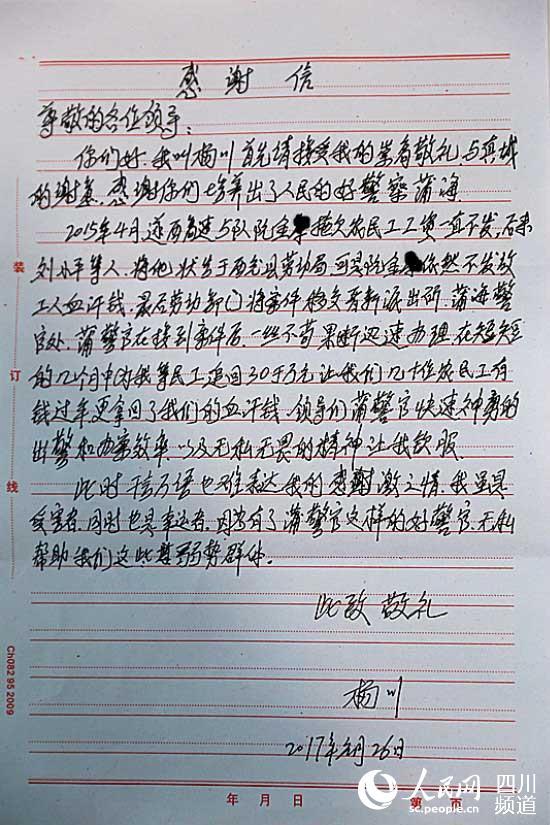 感谢信
尊敬的各位领导:
你们好.我叫杨川首先请接受我的崇高敬礼与真城
的谢意.感谢你们培养出了人民的好警察蒲海
2015年4月遂西高速5队阮金 拖欠农民工工资一直不发,后来
刘小平等人将他状告于西充县劳动局可是阮金 依然不发放
工人血汗钱.最后劳动部门将案件移交晋新派出所.蒲海警
官处.蒲警官在接到案件后一丝不苟果断迅速办理.在短短
的几个月中为我等民工追回30于万元让我们几十位农民工有
钱过年更拿回了我们的血汗钱.领导们蒲警官快速神勇的
出警和办案效率以及无私无畏的精神让我钦服.
此时千言万语也难表达我的感谢激之情.我虽是
受害者.同时也是幸运者.因为有了蒲警官这样的好警官.无私
帮助我们这些弱势群体。
此致敬礼
杨川
2017年 月26日
装
订
线
Ch082 95 2009
年 月 日
第 页
人民网 四川
sc.people.cn 频道